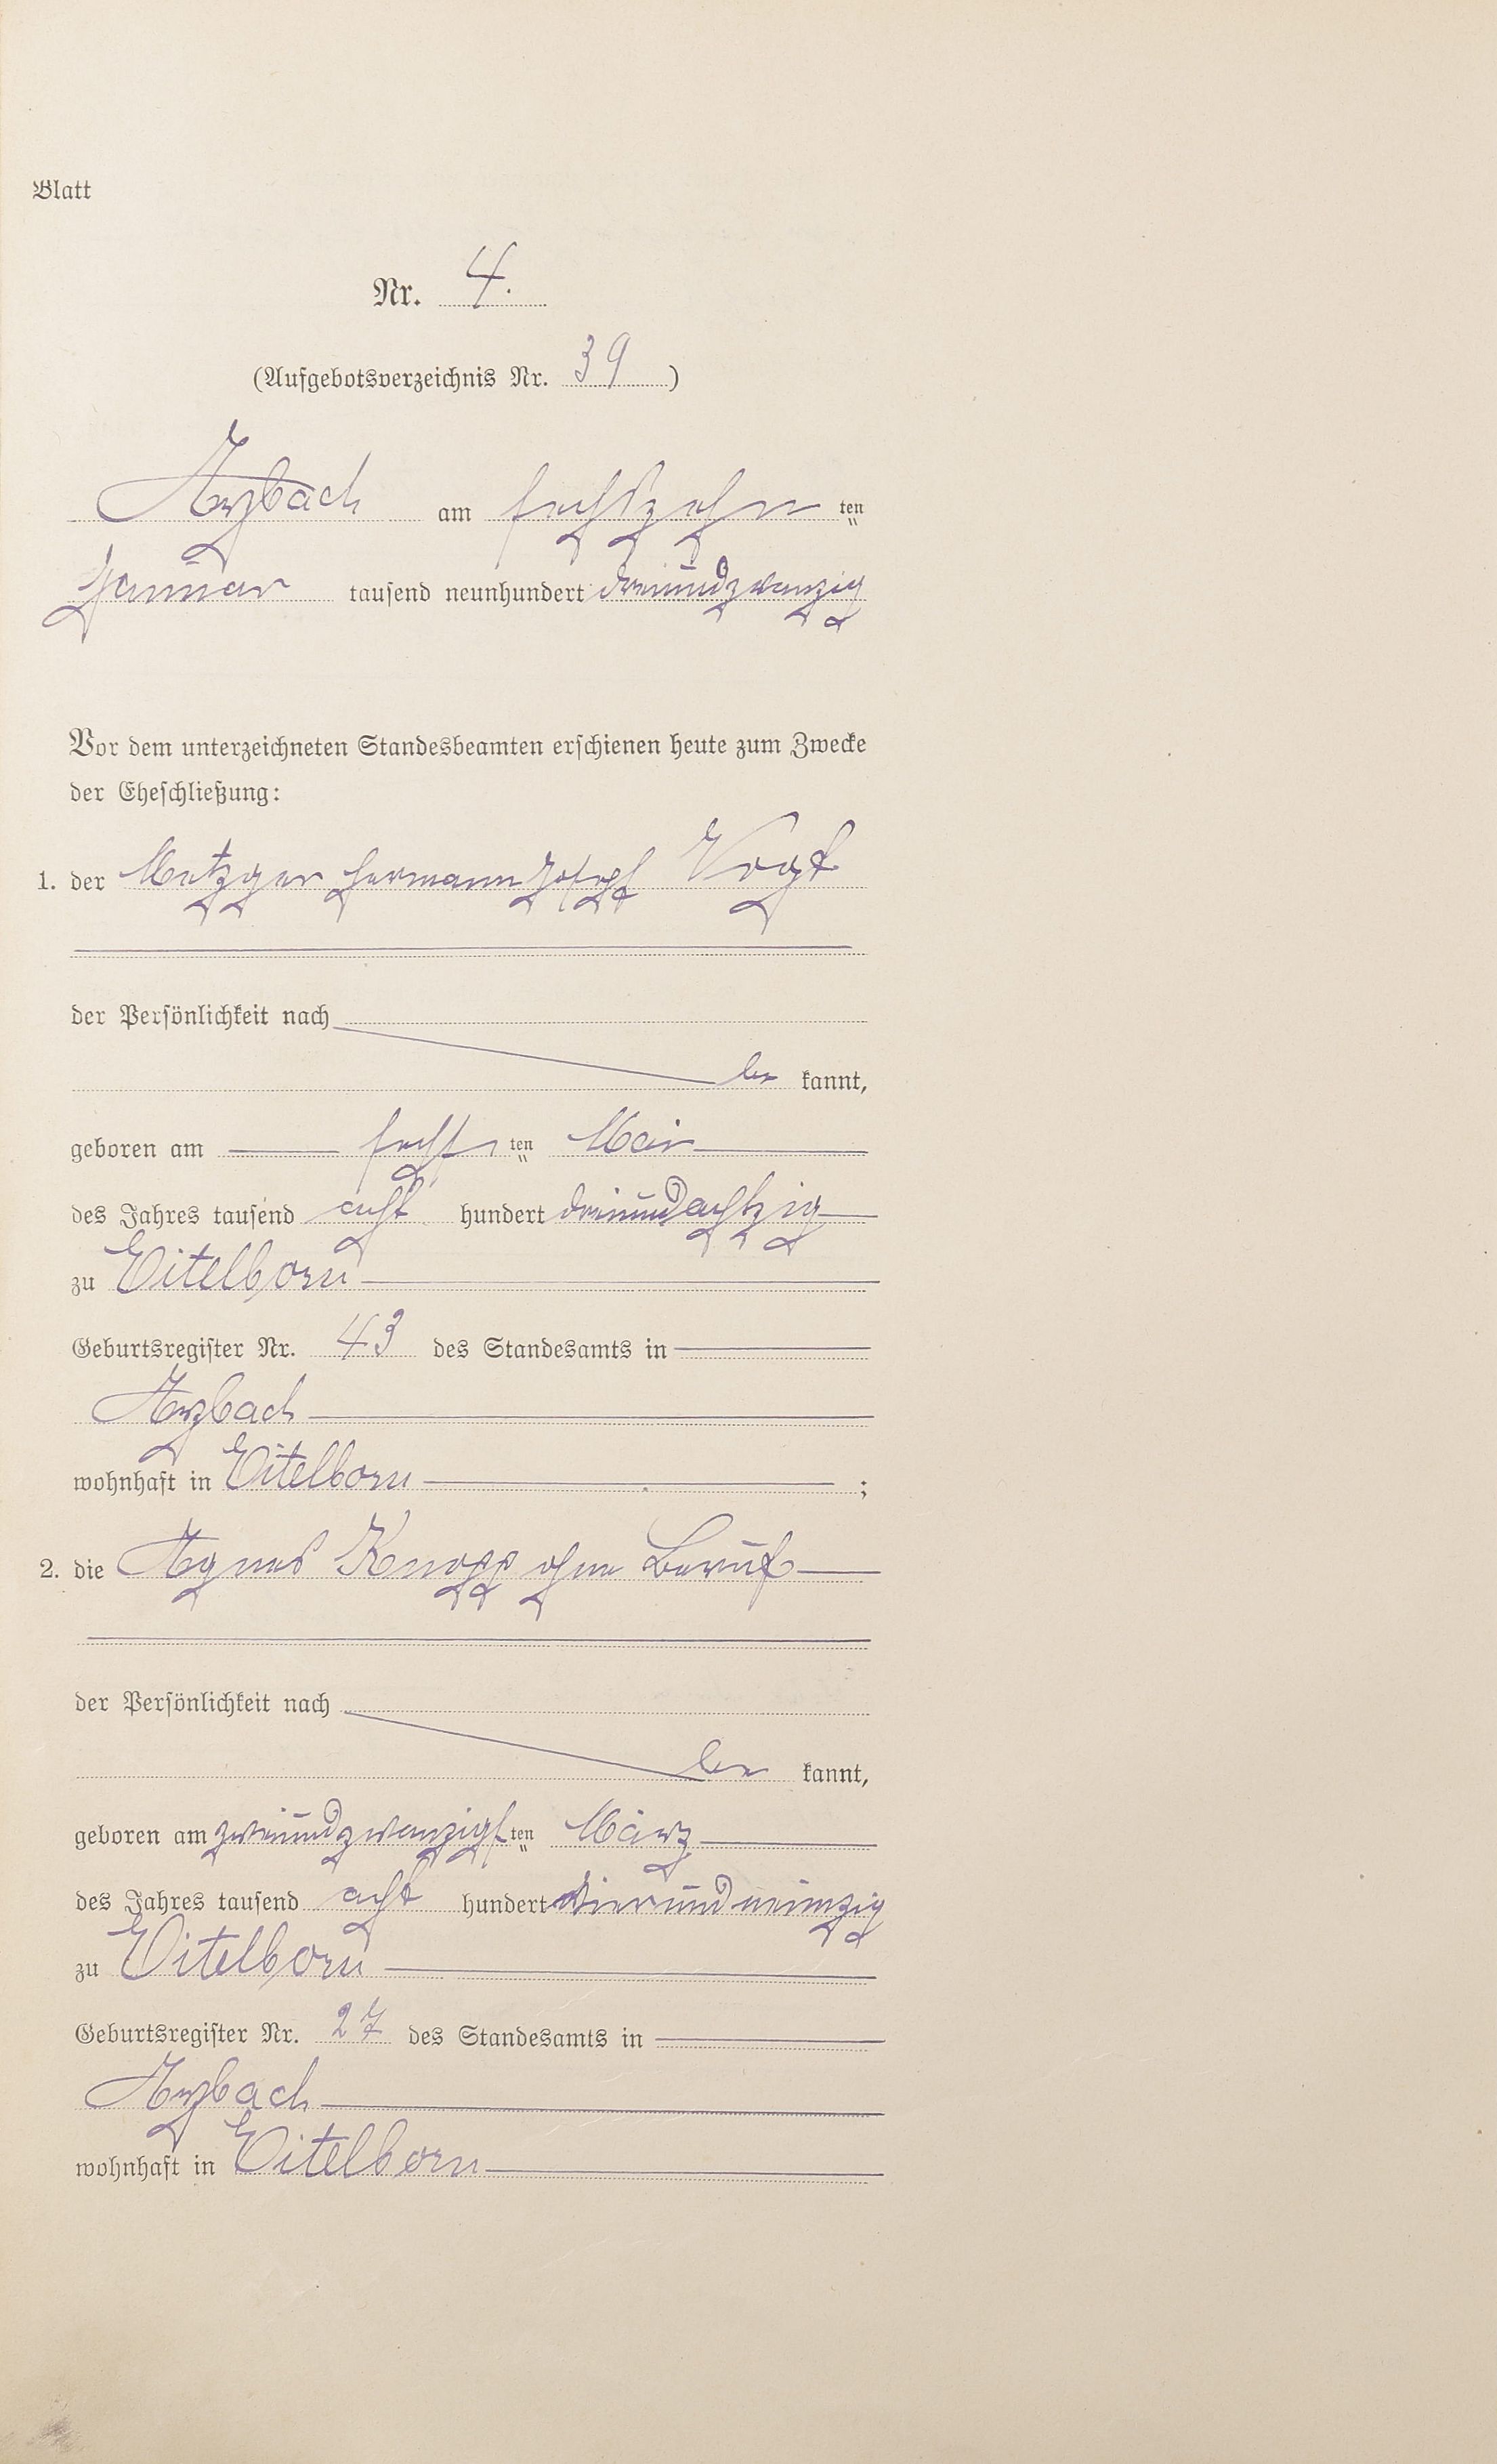 Blatt
Nr. 4.
(Aufgebotsverzeichnis Nr. 39)
Arzbach am sechszehn ten
Januar tausend neunhundert dreiundzwanzig
Vor dem unterzeichneten Standesbeamten erschienen heute zum Zwecke
der Eheschließung:
1. der Metzger Hermann Josef Vogt
der Persönlichkeit nach
be kannt,
geboren am sechs ten Mai
des Jahres tausend acht hundert dreiundachtzig
zu Eitelborn
Geburtsregister Nr. 43 des Standesamts in
Arzbach
wohnhaft in Eitelborn ;
2. die Agnes Knopp ohne Beruf
der Persönlichkeit nach
be kannt,
geboren am zweiundzwanzigs ten März
des Jahres tausend acht hundert vierundneunzig
zu Eitelborn
Geburtsregister Nr. 27 des Standesamts in
Arzbach
wohnhaft in Eitelborn